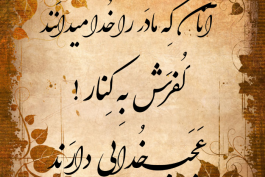 آنان کِه مادَر را خُدا میدانند
کُفرَش بِه کِنار !
عَجَب خُدایی دارَند